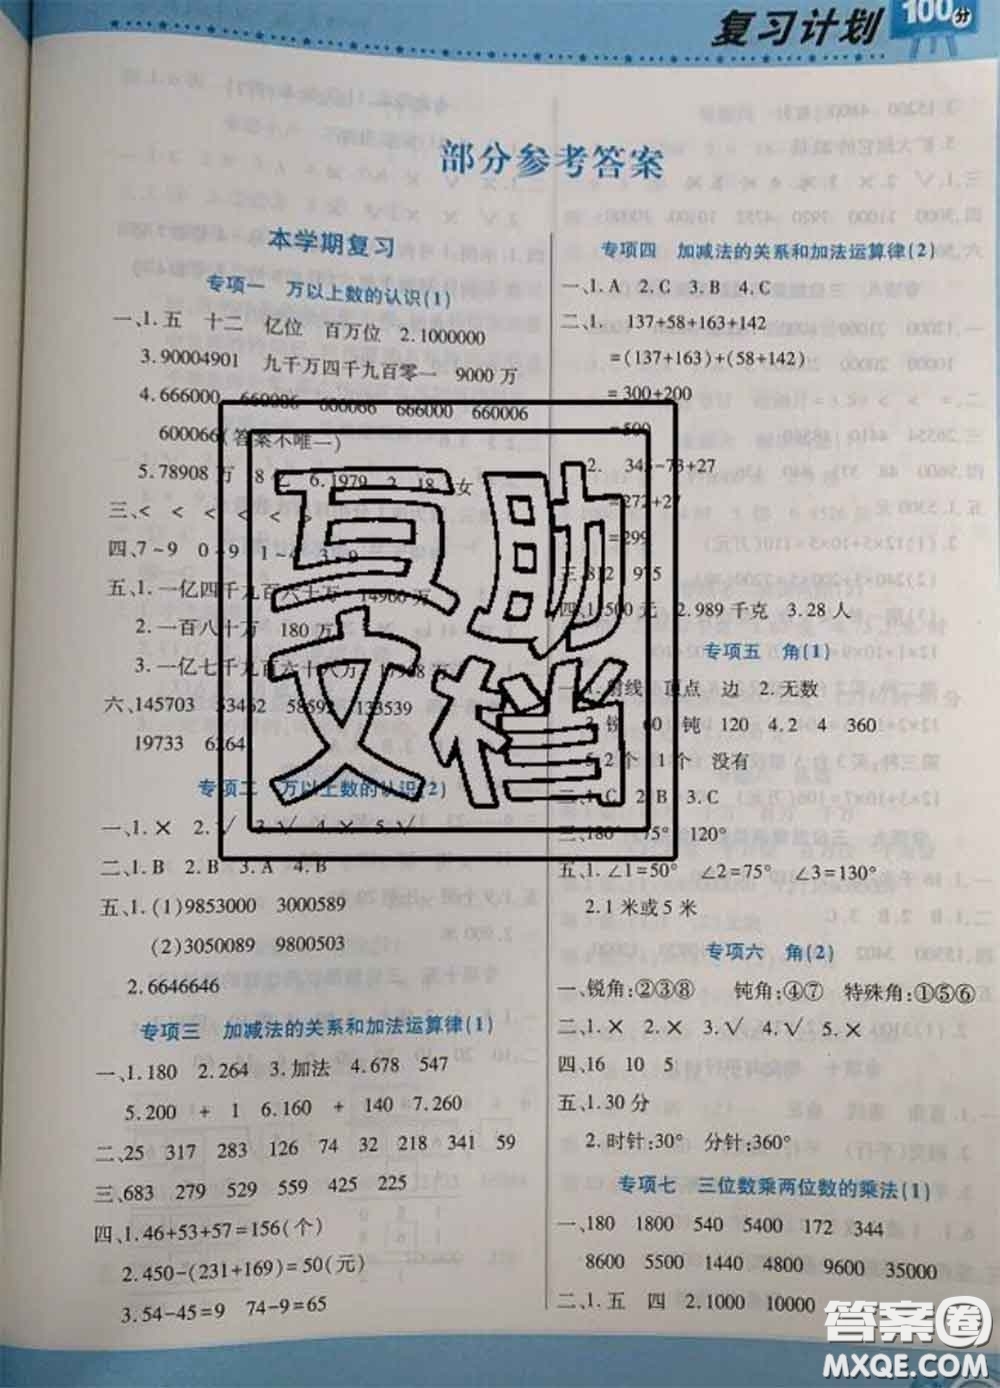 复习计划
100分
部分参考答案
本学期复习
专项一 万以上数的认识(1)
一、1.五 十二 亿位 百万位 2.1000000
3.90004901 九千万四千九百零一 9000万
4.666000 660006 600066 666000 660006
600066(答案不唯一)
5.78908万 8亿 6.1979 2 18 女
三、< < < < < >
四、7~9 0~9 1~4 3~9
五、1.一亿四千九百六十万 14960万
2.一百八十万 180万
3.一亿七千九百六十八万 17968万
六、145703 53462 58592 133539
19733 6264
专项二 万以上数的认识(2)
一、1.× 2.√ 3.√ 4.× 5.√
二、1.B 2.B 3.A 4.B
五、1.(1)9853000 3000589
(2)3050089 9800503
2.6646646
专项三 加减法的关系和加法运算律(1)
一、1.180 2.264 3.加法 4.678 547
5.200 + 1 6.160 + 140 7.260
二、25 317 283 126 74 32 218 341 59
三、683 279 529 559 425 225
四、1.46+53+57=156(个)
2.450-(231+169)=50(元)
3.54-45=9 74-9=65
专项四 加减法的关系和加法运算律(2)
一、1.A 2.C 3.B 4.C
二、1. 137+58+163+142
=(137+163)+(58+142)
=300+200
=500
2. 345-73+27
=272+27
=299
三、812 975
四、1.500元 2.989千克 3.28人
专项五 角(1)
一、1.射线 顶点 边 2.无数
3.锐 60 钝 120 4.2 4 360
5.2个 1个 没有
二、1.C 2.B 3.C
三、180° 75° 120°
五、1.∠1=50° ∠2=75° ∠3=130°
2.1米或5米
专项六 角(2)
一、锐角:②③⑧ 钝角:④⑦ 特殊角:①⑤⑥
二、1.× 2.× 3.√ 4.√ 5.×
四、16 10 5
五、1.30分
2.时针:30° 分针:360°
专项七 三位数乘两位数的乘法(1)
一、180 1800 540 5400 172 344
8600 5500 1440 4800 9600 35000
二、1.五 四 2.1000 10000
互助
文档
答案圈
MXQE.COM